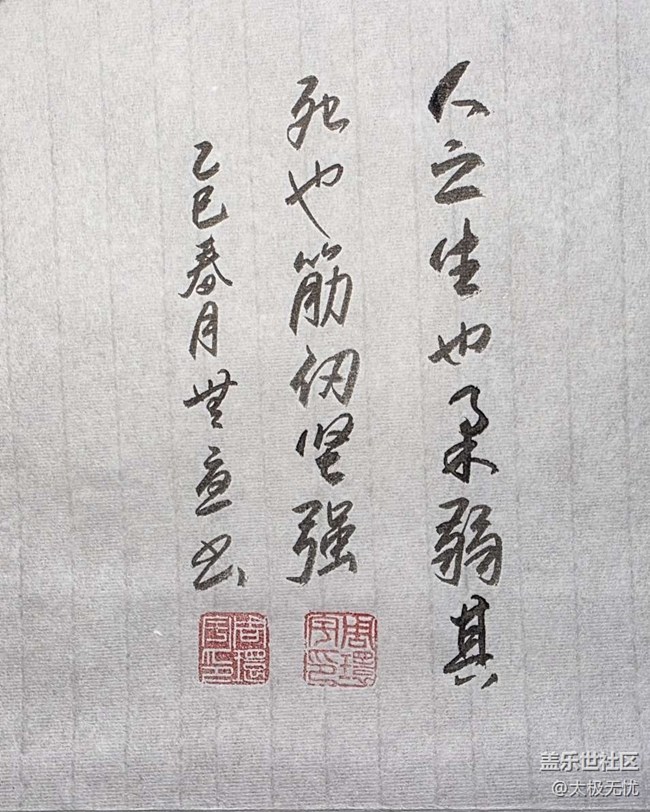 人之生也柔弱其
死也筋仞坚强
乙巳春月书
盖乐世社区
@太极无忧